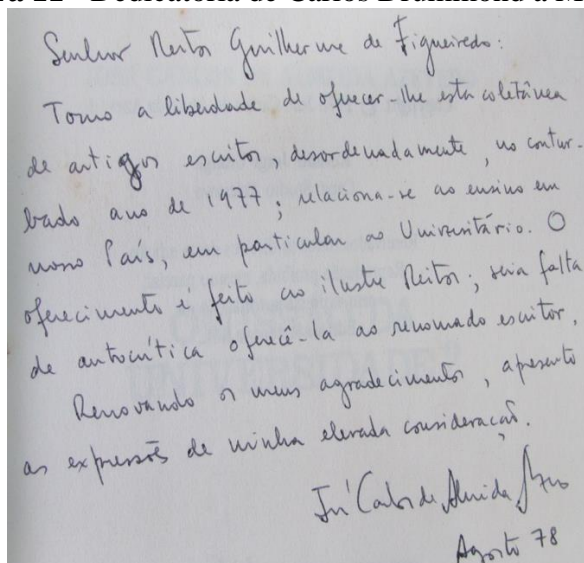 ra 22 - Dedicatória de Carlos Drummond a M
Senhor Reitor Guilherme de Figueiredo:
Tomo a liberdade de oferecer-lhe esta coletânea
de artigos escritos, desordenadamente, no contur-
bado ano de 1977; relaciona-se ao ensino em
nosso País, em particular ao Universitário. O
oferecimento é feito ao ilustre Reitor; seria falta
de autocrítica oferecê-la ao renomado escritor.
Renovando os meus agradecimentos, apresento
as expressões de minha elevada consideração.
José Carlos de Almeida
Agosto 78